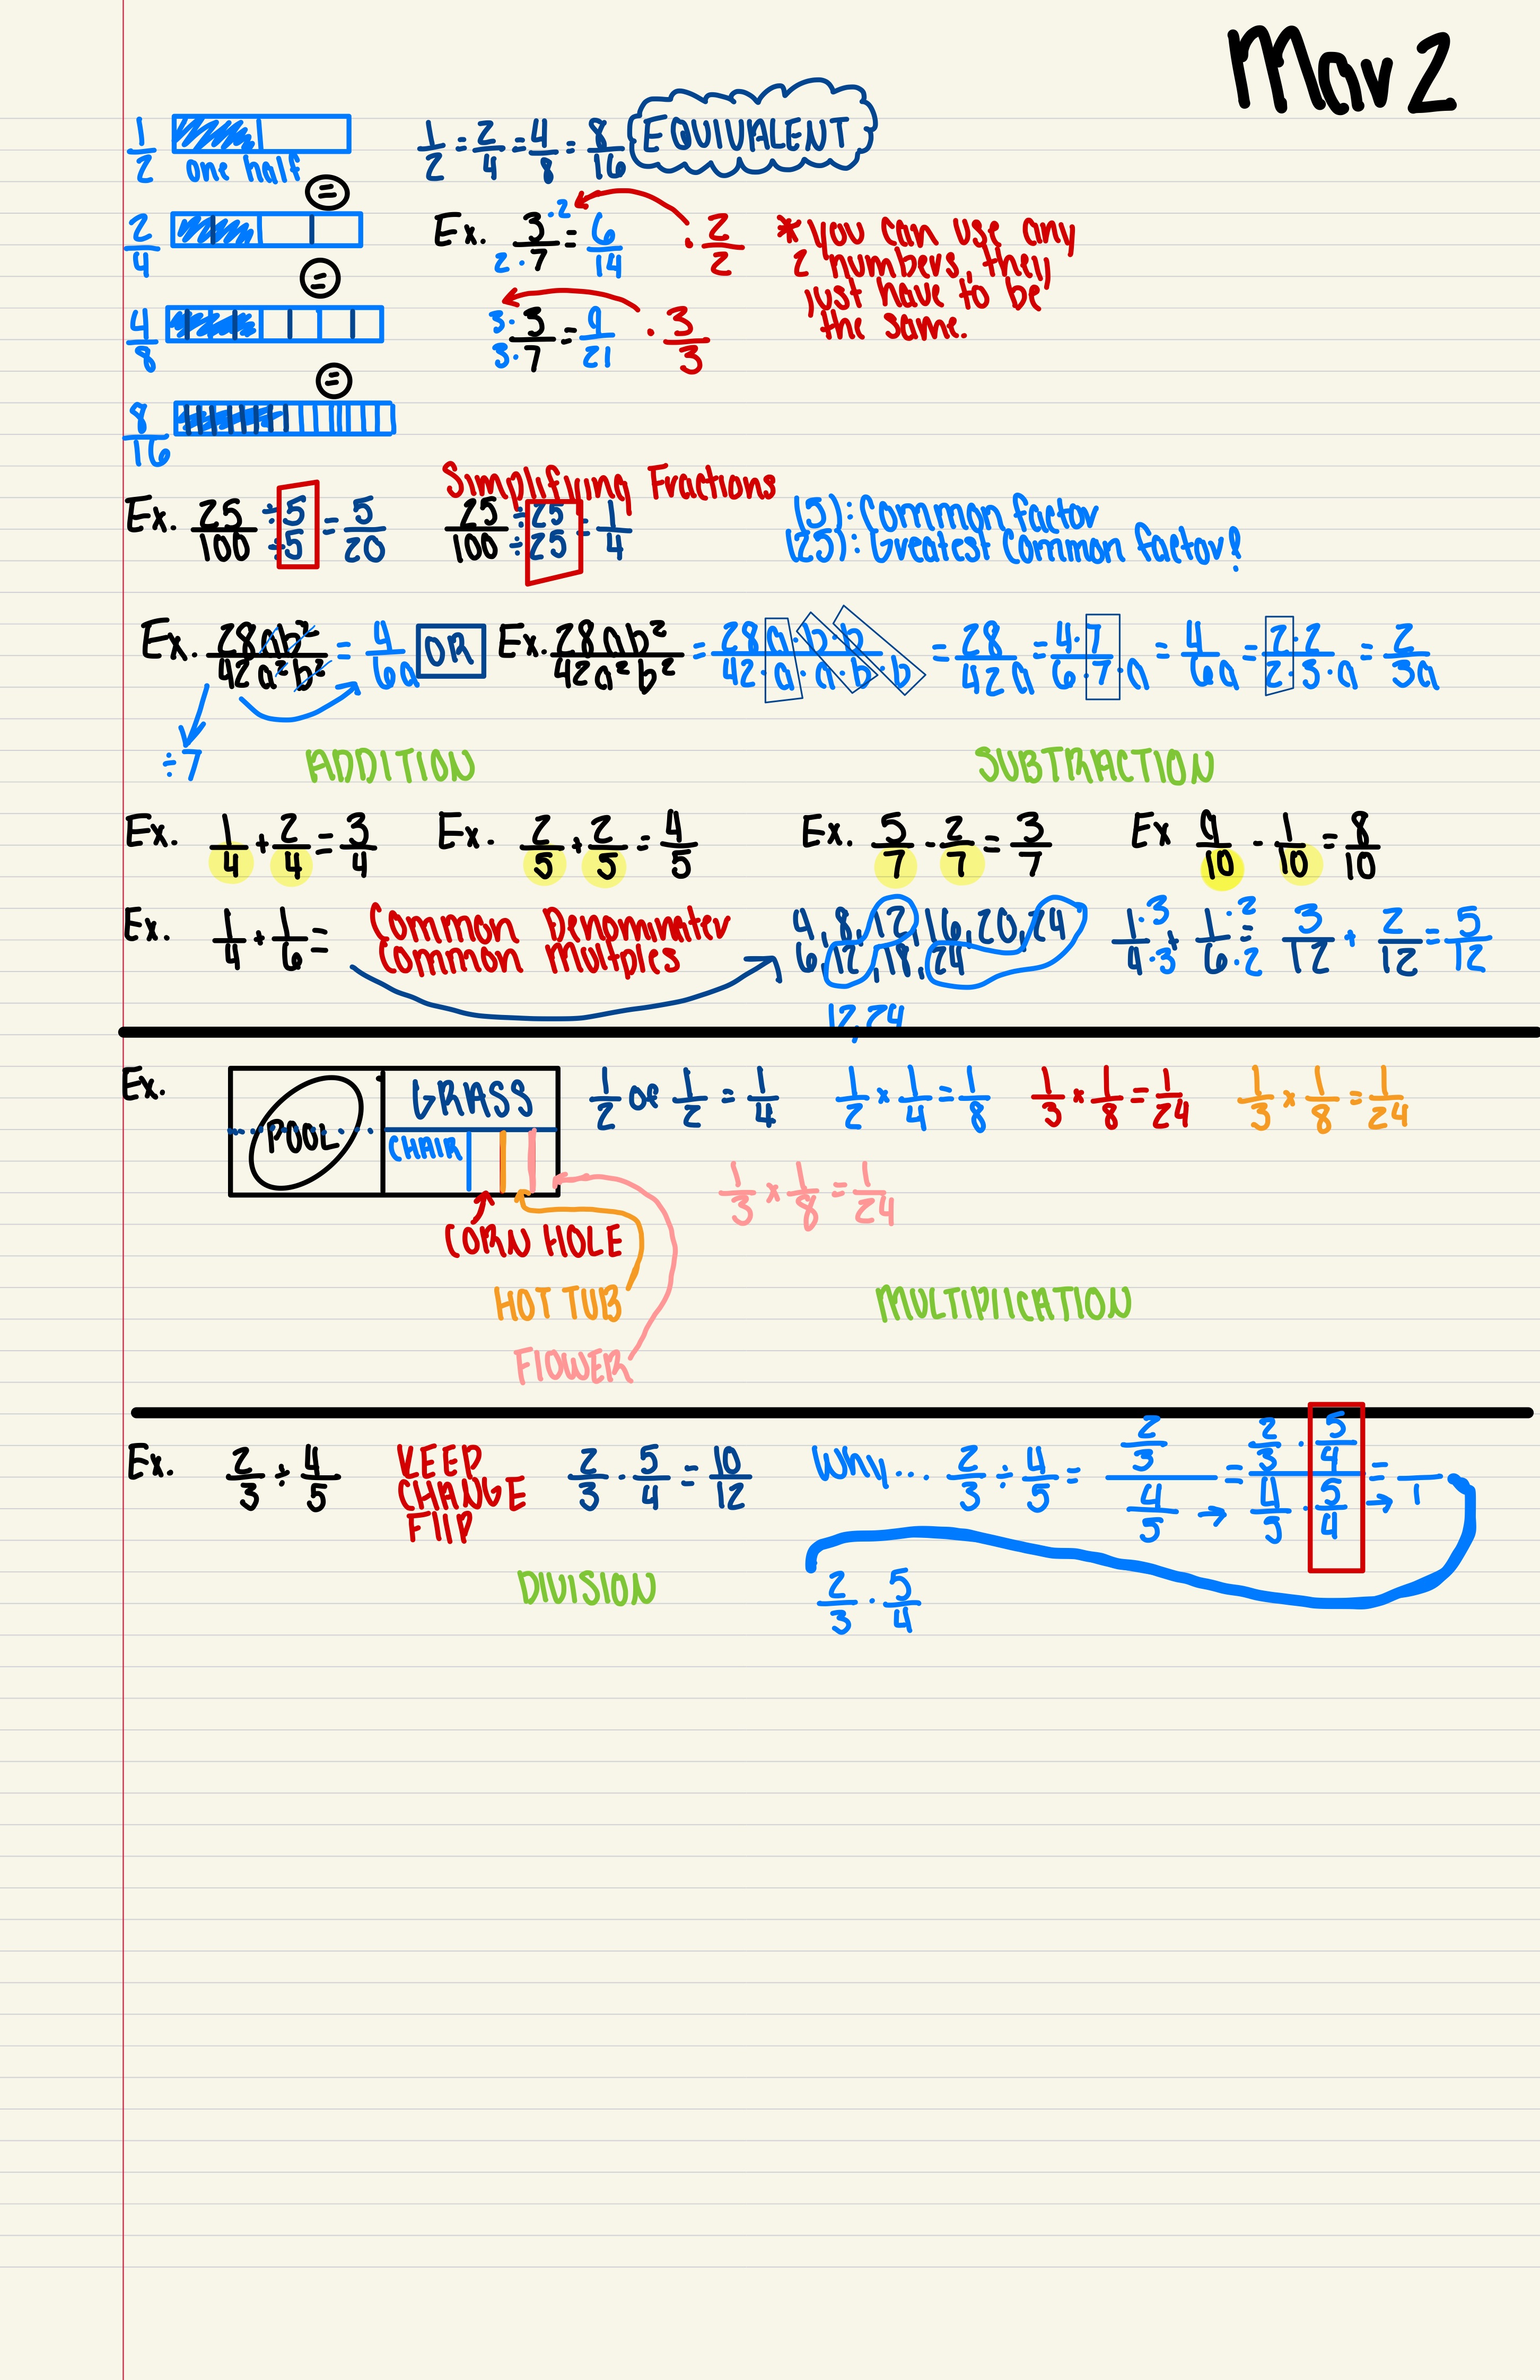 Mar 2
1/2 one half
1/2 = 2/4 = 4/8 = 8/16 EQUIVALENT
=
2/4
Ex. 3·2 / 2·7 = 6/14 · 2/2
* you can use any
2 numbers, they
just have to be
the same.
=
4/8
3·3 / 3·7 = 9/21 · 3/3
=
8/16
Simplifying Fractions
Ex. 25/100 ÷5/÷5 = 5/20
25/100 ÷25/÷25 = 1/4
(5): Common factor
(25): Greatest Common factor!
Ex. 28ab²/42a²b² = 4/6a OR Ex. 28ab²/42a²b² = 28·a·b·b/42·a·a·b·b = 28/42a = 4·7/6·7·a = 4/6a = 2·2/2·3·a = 2/3a
÷7
ADDITION
SUBTRACTION
Ex. 1/4 + 2/4 = 3/4 Ex. 2/5 + 2/5 = 4/5 Ex. 5/7 - 2/7 = 3/7 Ex 9/10 - 1/10 = 8/10
Ex. 1/4 + 1/6 =
Common Denominater
Common Multples
4, 8, 12, 16, 20, 24
6, 12, 18, 24
12, 24
1·3/4·3 + 1·2/6·2 = 3/12 + 2/12 = 5/12
Ex.
POOL
GRASS
CHAIR
1/2 of 1/2 = 1/4 1/2 × 1/4 = 1/8 1/3 × 1/8 = 1/24 1/3 × 1/8 = 1/24
1/3 × 1/8 = 1/24
CORN HOLE
HOT TUB
FLOWER
MULTIPLICATION
Ex. 2/3 ÷ 4/5
KEEP
CHANGE
FLIP
2/3 · 5/4 = 10/12
Why... 2/3 ÷ 4/5 = 2/3 / 4/5 → = 2/3 · 5/4 / 4/5 · 5/4 → = /1
2/3 · 5/4
DIVISION